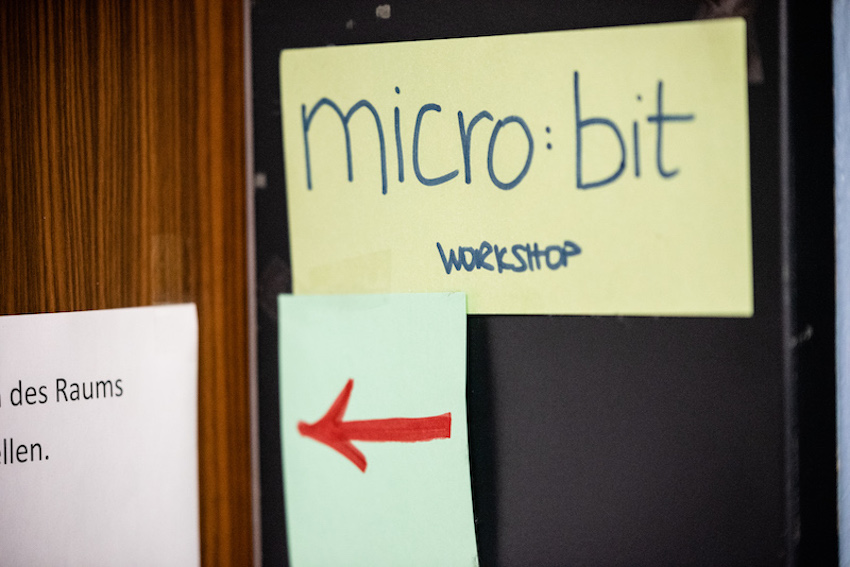 micro:bit
WORKSHOP
des Raums